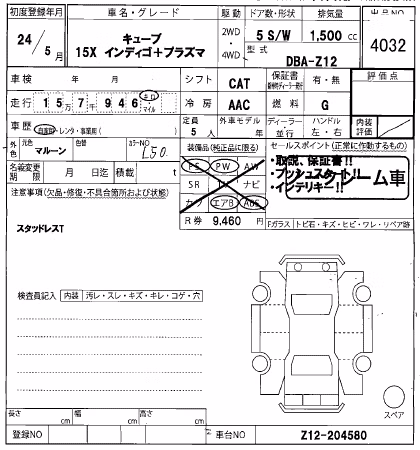 初度登録年月 車名・グレード 駆動 ドア数・形状 排気量 出品NO
24年 5月 キューブ 15X インディゴ+プラズマ 2WD・4WD 5 S/W 1,500 cc 4032
型式 DBA-Z12
車検 年 月 シフト CAT 保証書 有・無 評価点
走行 15万7946 km・マイル 冷房 AAC 燃料 G
車歴 自家用・レンタ・事業用( ) 定員 5人 外車モデル 年 ディーラー・並行 ハンドル 左・右 内装評価
外色 元色 マルーン 色替 カラーNO L50
装備品(純正品に限る) セールスポイント(正常に作動するもの)
名義変更期限 月 日迄 積載 t
PS PW AW
SR ナビ
カワ エアB ABS
・取説、保証書!!
・プッシュスタート!!
・インテリキー!!
ノークレーム車
注意事項(欠品・修復・不具合箇所および状態)
R券 9,460 円
Fガラス トビ石・キズ・ヒビ・ワレ・リペア跡
スタッドレスT
検査員記入 内装 汚レ・スレ・キズ・キレ・コゲ・穴
スペア
長さ cm 幅 cm 高さ cm
登録NO 車台NO Z12-204580